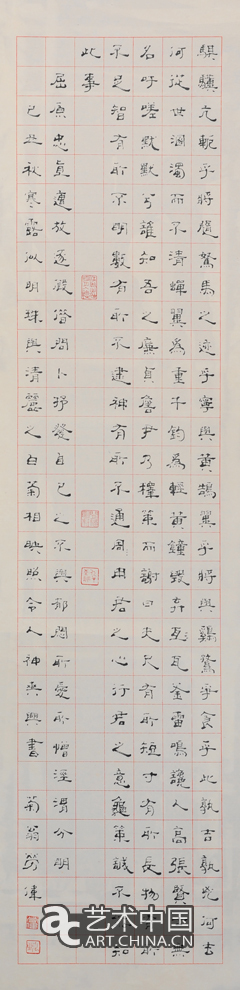 騏驥亢軛乎將隨駑馬之迹乎寧與黃鵠翼乎將與鷄鶩爭食乎此孰吉孰兇何去
何從世溷濁而不清蟬翼為重千鈞為輕黃鐘毀弃瓦釜雷鳴讒人高張賢士無
名吁嗟默默兮誰知吾之廉貞詹尹乃擇策而謝曰夫尺有所短寸有所長物有所
不足智有所不明數有所不逮神有所不通周用君之心行君之意龜策誠不能知
此事
屈原忠貞遭放逐假借問卜抒發自己之不與邪所愛所憎涇渭分明
己丑秋寒露以明珠與清麗之白菊相映照令人神爽興書 菊翁勞凍
艺术中国
ART.CHINA.CN